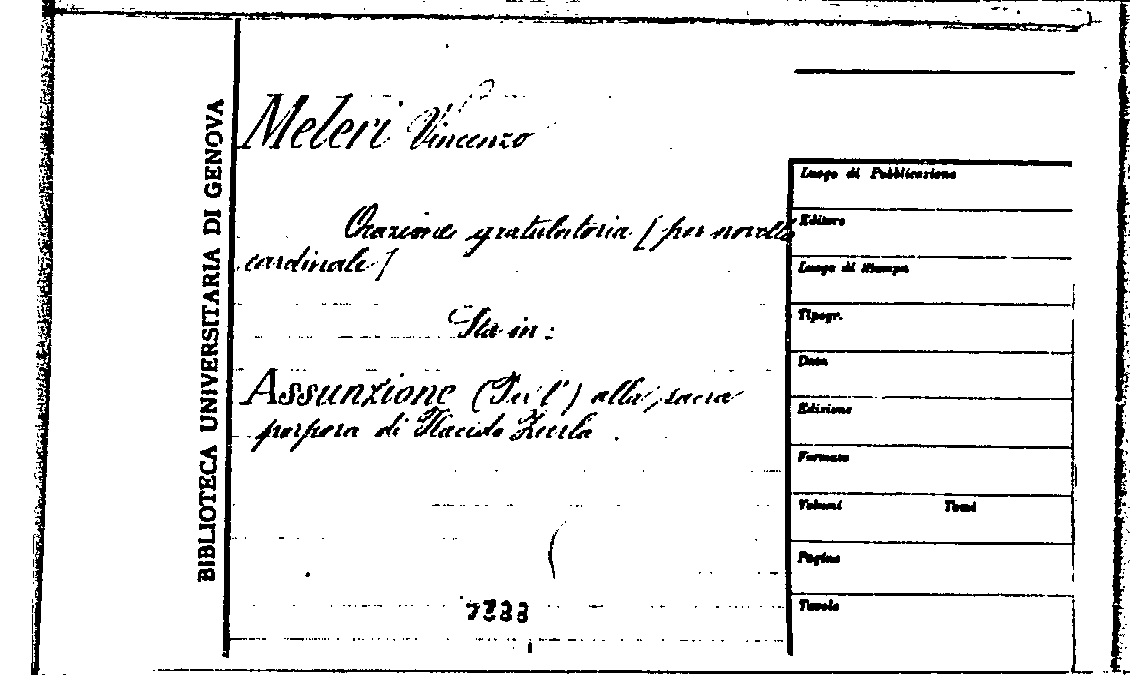 BIBLIOTECA UNIVERSITARIA DI GENOVA
Meleri Vincenzo
Orazione gratulatoria [per novello
cardinale]
Sta in:
Assunzione (Per l') alla sacra
porpora di Placido Zurla
7388
Luogo di Pubblicazione
Editore
Luogo di Stampa
Tipogr.
Data
Edizione
Formato
Volumi Tomi
Pagine
Tavole